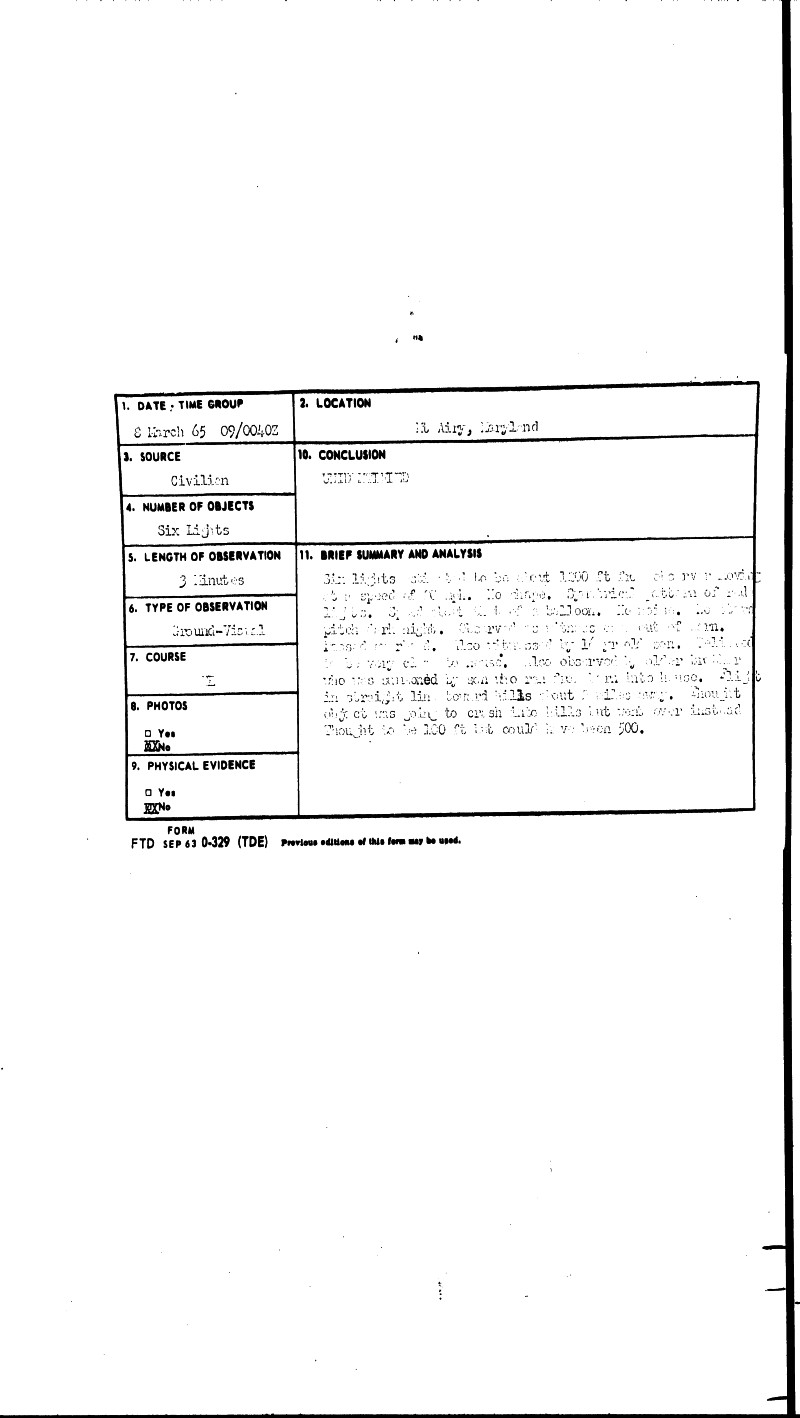 1. DATE - TIME GROUP
8 March 65 09/0040Z
2. LOCATION
Mt Airy, Maryland
3. SOURCE
Civilian
10. CONCLUSION
UNIDENTIFIED
4. NUMBER OF OBJECTS
Six Lights
5. LENGTH OF OBSERVATION
3 Minutes
11. BRIEF SUMMARY AND ANALYSIS
Six lights to be about ft moving
at a speed of No shape. pattern of red
lights. of a balloon. No
pitch dark night. out of barn.
Also witnessed by yr old son.
to be very to house. Also observed by older brother
who was summoned by son who ran from barn into house. Flight
in straight line toward hills about miles away. Thought
object was going to crash into hills but went over instead
Thought to be 100 ft but could have been 500.
6. TYPE OF OBSERVATION
Ground-Visual
7. COURSE
8. PHOTOS
□ Yes
XXNo
9. PHYSICAL EVIDENCE
□ Yes
XXNo
FORM
FTD SEP 63 0-329 (TDE) Previous editions of this form may be used.